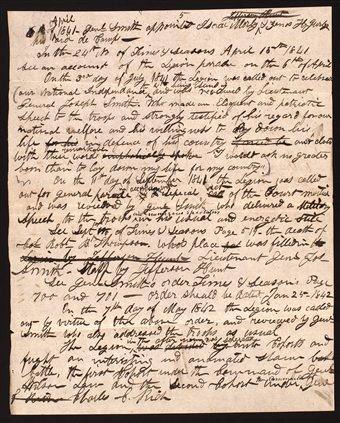 April 5
1841 - Genl Smith appointed
his Aid de Camp
In the 24th No of Times & Seasons April 15th 1841
see an account of the Legion parade on the 6th of April
On the 3rd of July 1841 the Legion was called out to celebrate
our National Independence, and was reviewed by Lieutenant
General Joseph Smith. Who made an eloquent and patriotic
speech to the troops and strongly testified of his regard for our
national welfare and his willingness to lay down his
life in defence of his country and closed
with these words I would ask no greater
boon than to lay down my life for my country
On the 11th of September 1841 the Legion was called
out for general parade of the Court martial
and was reviewed by Genl Smith who delivered a military
speech to the troops in his usual and energetic style
See Sept No of Times & Seasons Page 519. the death of
Col Robt B Thompson, whose place was filled in
Lieutenant Genl Jos
Smith Staff by Jefferson Hunt
See Genl Smiths order Times & Seasons Page
700 and 701 - order should be dated Jan 25th 1842
On the 7th day of May 1842 the Legion was called
out by virtue of the above order and reviewed by Genl
Smith who also addressed the troops as usual
The Legion in the after noon into Cohorts and
fought an interesting and animated sham
battle, the first Cohort under the command of Genl
Wilson Law and the Second Cohort under Genl
Charles C. Rich